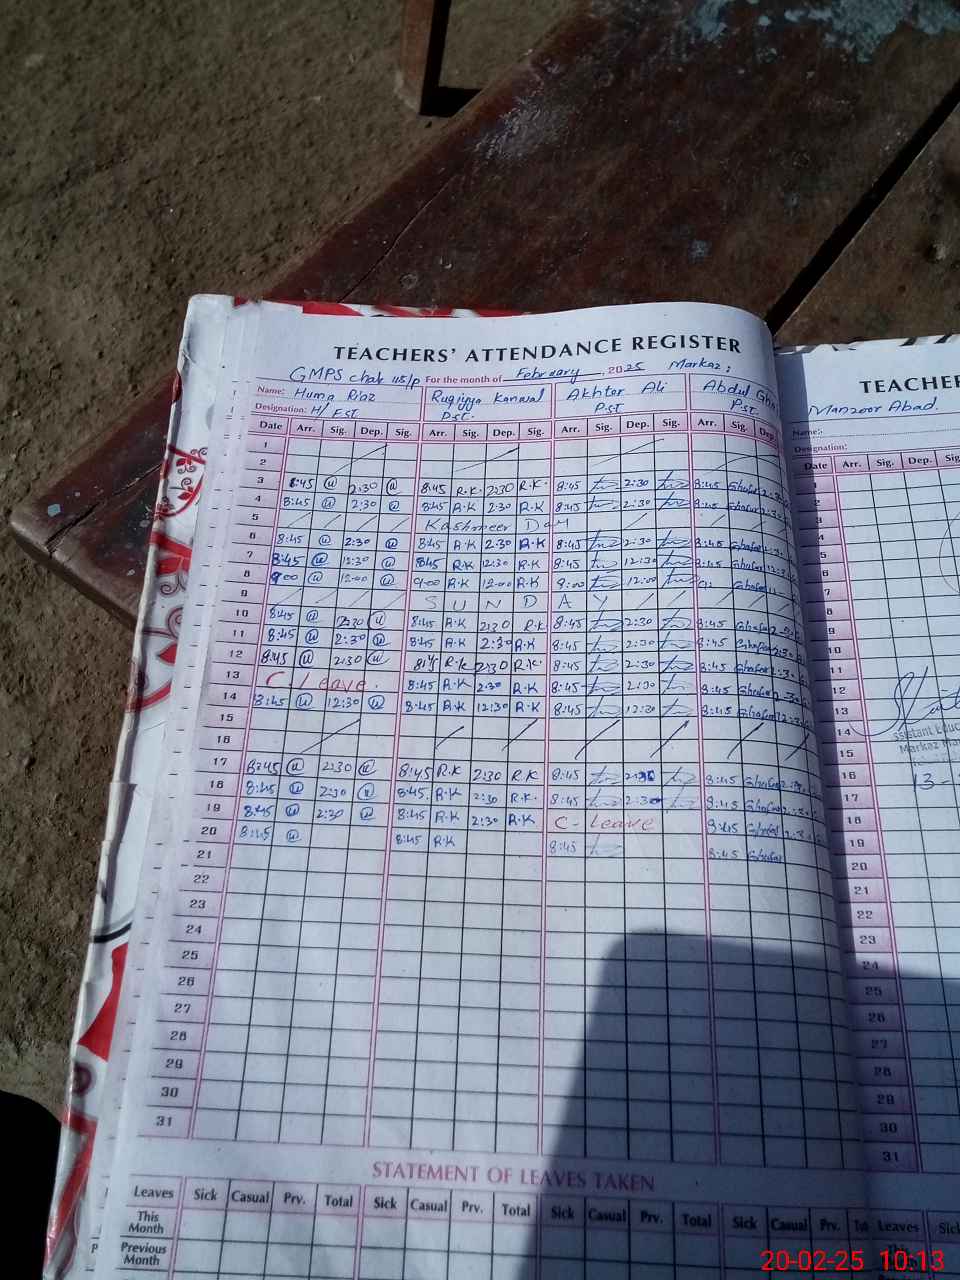 TEACHERS' ATTENDANCE REGISTER
GMPS chak 115/P For the month of February, 2025 Markaz:
Name: Huma Riaz Ruqiyya Kanwal Akhter Ali Abdul Gha
Designation: H/ EST P.S.T. P.S.T P.S.T.
Date Arr. Sig. Dep. Sig. Arr. Sig. Dep. Sig. Arr. Sig. Dep. Sig. Arr. Sig. Dep.
1
2
3 8:45 2:30 8:45 R.K. 2:30 R.K. 8:45 2:30 8:45 Ghafar
4 8:45 2:30 8:45 R.K 2:30 R.K 8:45 2:30 8:45 Ghafar
5 Kashmeer Day
6 8:45 2:30 8:45 R.K 2:30 R.K 8:45 2:30 8:45 Ghafar
7 8:45 12:30 8:45 R.K 12:30 R.K 8:45 12:30 8:45 Ghafar
8 9:00 12:00 9:00 R.K 12:00 R.K 9:00 12:00 Ghafar
9 SUNDAY
10 8:45 2:30 8:45 R.K 2:30 R.K 8:45 2:30 8:45 Ghafar
11 8:45 2:30 8:45 R.K 2:30 R.K 8:45 2:30 8:45 Ghafar
12 8:45 2:30 R.K 2:30 R.K. 8:45 2:30 8:45 Ghafar
13 C Leave. 8:45 R.K 2:30 R.K 8:45 2:30 8:45 Ghafar
14 8:45 12:30 8:45 R.K 12:30 R.K 8:45 12:30 8:45 Ghafar
15
16
17 8:45 2:30 8:45 R.K 2:30 R.K 8:45 8:45 Ghafar
18 8:45 2:30 8:45. R.K 2:30 R.K. 8:45 2:30 8:45 Ghafar
19 8:45 2:30 8:45 R.K 2:30 R.K C-Leave 8:45 Ghafar
20 8:45 8:45 R.K 8:45 8:45 Ghafar
21
22
23
24
25
26
27
28
29
30
31
STATEMENT OF LEAVES TAKEN
Leaves Sick Casual Prv. Total Sick Casual Prv. Total Sick Casual Prv. Total Sick Casual Prv.
This Month
Previous Month
TEACHER
Manzoor Abad.
Name:
Designation:
Date Arr. Sig. Dep. Sig
1
2
3
4
5
6
7
8
9
10
11
12
13
14
15
16
17
18
19
20
21
22
23
24
25
26
27
28
29
30
31
ssistant Educ
Markaz Man
13-
Leaves Sick
20-02-25 10:13